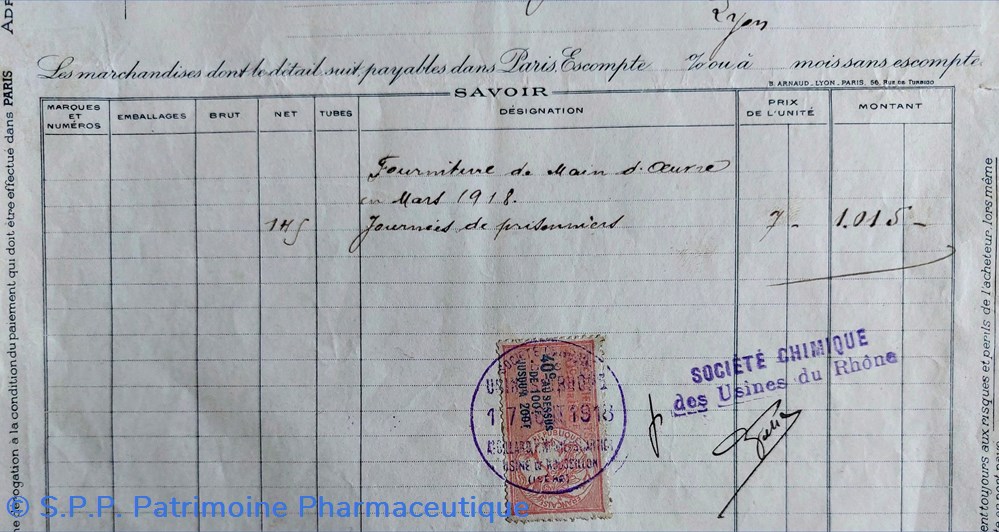 Lyon
Les marchandises dont le détail suit, payables dans Paris, Escompte % ou à mois sans escompte.
B. ARNAUD - LYON - PARIS, 56, RUE DE TURBIGO
SAVOIR
MARQUES ET NUMÉROS EMBALLAGES BRUT NET TUBES DÉSIGNATION PRIX DE L'UNITÉ MONTANT
Fourniture de Main d'Œuvre
en Mars 1918.
145 Journées de prisonniers 7 - 1.015 -
SOCIÉTÉ CHIMIQUE
des Usines du Rhône
40c AU DESSUS
DE 100F
JUSQU'A 200F
1918
USINE DE ROUSSILLON
(ISÈRE)
dérogation à la condition du paiement qui doit être effectué dans PARIS
toujours aux risques et périls de l'acheteur, lors même
© S.P.P. Patrimoine Pharmaceutique